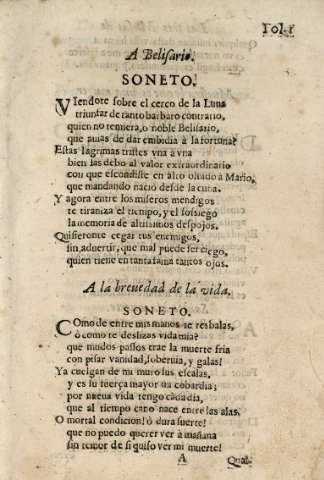 Fol. 1
A Belisario.
SONETO.
VIendote sobre el cerco de la Luna
triunfar de tanto barbaro contrario,
quien no temiera, o noble Belisario,
que auias de dar embidia a la fortuna?
Estas lagrimas tristes vna a vna
bien las debo al valor extraordinario
con que escondiste en alto oluido a Mario,
que mandando nació desde la cuna.
Y agora entre los miseros mendigos
te tiraniza el tiempo, y el sossiego
la memoria de altissimos despojos.
Quisieronte cegar tus enemigos,
sin aduertir, que mal puede ser ciego,
quien tiene en tanta fama tantos ojos.
A la breuedad de la vida.
SONETO.
COmo de entre mis manos te resbalas,
ó como te deslizas vida mia?
que mudos passos trae la muerte fria
con pisar vanidad, soberuia, y galas!
Ya cuelgan de mi muro sus escalas,
y es su fuerça mayor mi cobardia;
por nueua vida tengo cada dia,
que al tiempo cano nace entre las alas.
O mortal condicion! ó dura suerte!
que no puedo querer ver à mañana
sin temor de si quiso ver mi muerte!
A
Qual-